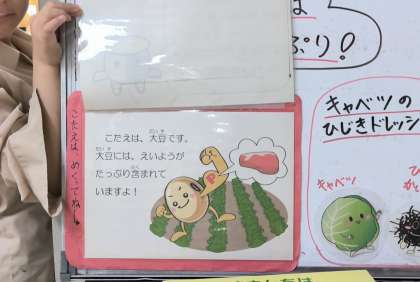 は
ぷり！
こたえは、めくってね！
こたえは、大豆です。
大豆には、えいようが
たっぷり含まれて
いますよ！
キャベツの
ひじきドレッシ
キャベツ
ひ